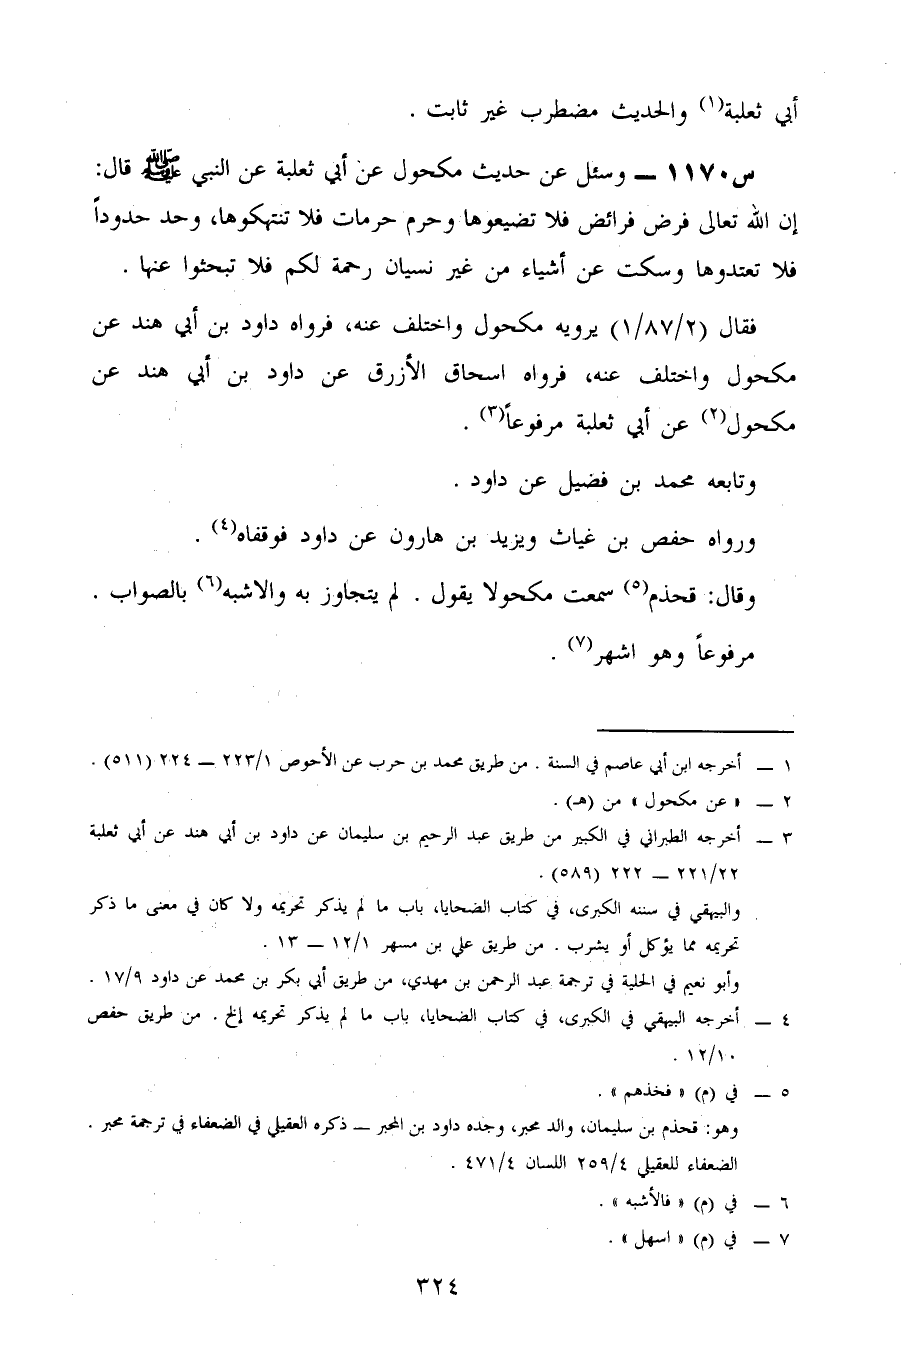 أبي ثعلبة(١) والحديث مضطرب غير ثابت .
س١١٧٠ ـ وسئل عن حديث مكحول عن أبي ثعلبة عن النبي ﷺ قال:
إن الله تعالى فرض فرائض فلا تضيعوها وحرم حرمات فلا تنتهكوها، وحد حدوداً
فلا تعتدوها وسكت عن أشياء من غير نسيان رحمة لكم فلا تبحثوا عنها .
فقال (١/٨٧/٢) يرويه مكحول واختلف عنه، فرواه داود بن أبي هند عن
مكحول واختلف عنه، فرواه اسحاق الأزرق عن داود بن أبي هند عن
مكحول(٢) عن أبي ثعلبة مرفوعاً(٣) .
وتابعه محمد بن فضيل عن داود .
ورواه حفص بن غياث ويزيد بن هارون عن داود فوقفاه(٤) .
وقال: قحذم(٥) سمعت مكحولا يقول . لم يتجاوز به والاشبه(٦) بالصواب .
مرفوعاً وهو اشهر(٧) .
١ ـ أخرجه ابن أبي عاصم في السنة . من طريق محمد بن حرب عن الأحوص ٢٢٣/١ ـ ٢٢٤ (٥١١) .
٢ ـ « عن مكحول » من (هـ) .
٣ ـ أخرجه الطبراني في الكبير من طريق عبد الرحيم بن سليمان عن داود بن أبي هند عن أبي ثعلبة
٢٢١/٢٢ ـ ٢٢٢ (٥٨٩) .
والبيهقي في سننه الكبرى، في كتاب الضحايا، باب ما لم يذكر تحريمه ولا كان في معنى ما ذكر
تحريمه مما يؤكل أو يشرب . من طريق علي بن مسهر ١٢/١ ـ ١٣ .
وأبو نعيم في الحلية في ترجمة عبد الرحمن بن مهدي، من طريق أبي بكر بن محمد عن داود ١٧/٩ .
٤ ـ أخرجه البيهقي في الكبرى، في كتاب الضحايا، باب ما لم يذكر تحريمه إلخ . من طريق حفص
١٢/١٠ .
٥ ـ في (م) « فخذهم » .
وهو: قحذم بن سليمان، والد محبر، وجده داود بن المحبر ـ ذكره العقيلي في الضعفاء في ترجمة محبر .
الضعفاء للعقيلي ٢٥٩/٤ اللسان ٤٧١/٤ .
٦ ـ في (م) « فالأشبه » .
٧ ـ في (م) « اسهل » .
٣٢٤